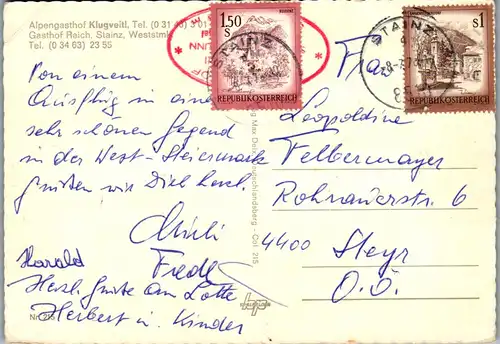 Alpengasthof Klugveitl, Tel. (0 31 40) 2 01
Gasthof Reich, Stainz, Weststmk.
Tel. (0 34 63) 23 55
1,50
S
REPUBLIK ÖSTERREICH
s1
REPUBLIK ÖSTERREICH
STAINZ
STAINZ
Von einem
Ausflug in eine
sehr schönen Gegend
in der West-Steiermark
grüßen wir Dich herzl.
Friedl
Harald
Herzl. Grüße an Lotte
Herbert u. Kinder
Nr. 215
Frau
Leopoldine
Felbermayer
Rohrauerstr. 6
4400 Steyr
O.Ö.